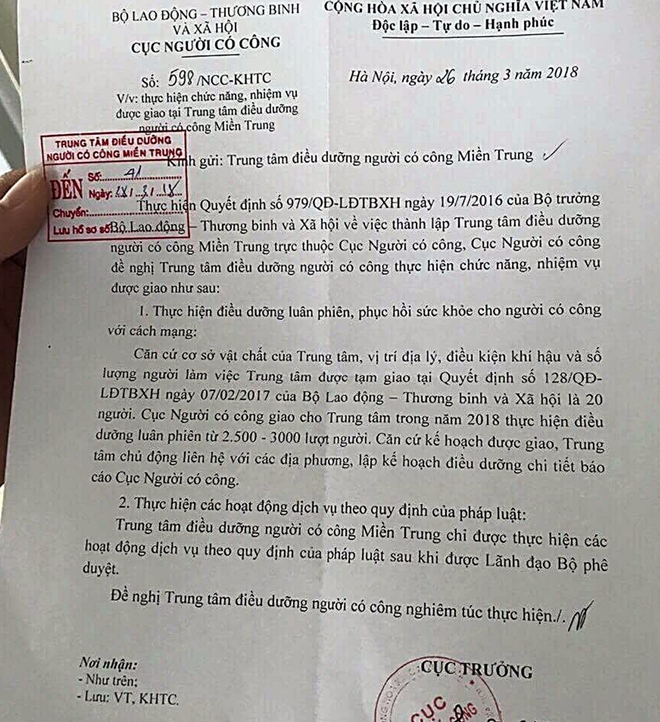 BỘ LAO ĐỘNG – THƯƠNG BINH
VÀ XÃ HỘI
CỤC NGƯỜI CÓ CÔNG
CỘNG HÒA XÃ HỘI CHỦ NGHĨA VIỆT NAM
Độc lập – Tự do – Hạnh phúc
Số: 598/NCC-KHTC
V/v: thực hiện chức năng, nhiệm vụ
được giao tại Trung tâm điều dưỡng
người có công Miền Trung
Hà Nội, ngày 26 tháng 3 năm 2018
TRUNG TÂM ĐIỀU DƯỠNG
NGƯỜI CÓ CÔNG MIỀN TRUNG
ĐẾN
Số: 41
Ngày:
Chuyển:
Lưu hồ sơ số
Kính gửi: Trung tâm điều dưỡng người có công Miền Trung
Thực hiện Quyết định số 979/QĐ-LĐTBXH ngày 19/7/2016 của Bộ trưởng
Bộ Lao động – Thương binh và Xã hội về việc thành lập Trung tâm điều dưỡng
người có công Miền Trung trực thuộc Cục Người có công, Cục Người có công
đề nghị Trung tâm điều dưỡng người có công thực hiện chức năng, nhiệm vụ
được giao như sau:
1. Thực hiện điều dưỡng luân phiên, phục hồi sức khỏe cho người có công
với cách mạng:
Căn cứ cơ sở vật chất của Trung tâm, vị trí địa lý, điều kiện khí hậu và số
lượng người làm việc Trung tâm được tạm giao tại Quyết định số 128/QĐ-
LĐTBXH ngày 07/02/2017 của Bộ Lao động – Thương binh và Xã hội là 20
người. Cục Người có công giao cho Trung tâm trong năm 2018 thực hiện điều
dưỡng luân phiên từ 2.500 - 3000 lượt người. Căn cứ kế hoạch được giao, Trung
tâm chủ động liên hệ với các địa phương, lập kế hoạch điều dưỡng chi tiết báo
cáo Cục Người có công.
2. Thực hiện các hoạt động dịch vụ theo quy định của pháp luật:
Trung tâm điều dưỡng người có công Miền Trung chỉ được thực hiện các
hoạt động dịch vụ theo quy định của pháp luật sau khi được Lãnh đạo Bộ phê
duyệt.
Đề nghị Trung tâm điều dưỡng người có công nghiêm túc thực hiện./.
Nơi nhận:
- Như trên;
- Lưu: VT, KHTC.
CỤC TRƯỞNG
CỤC